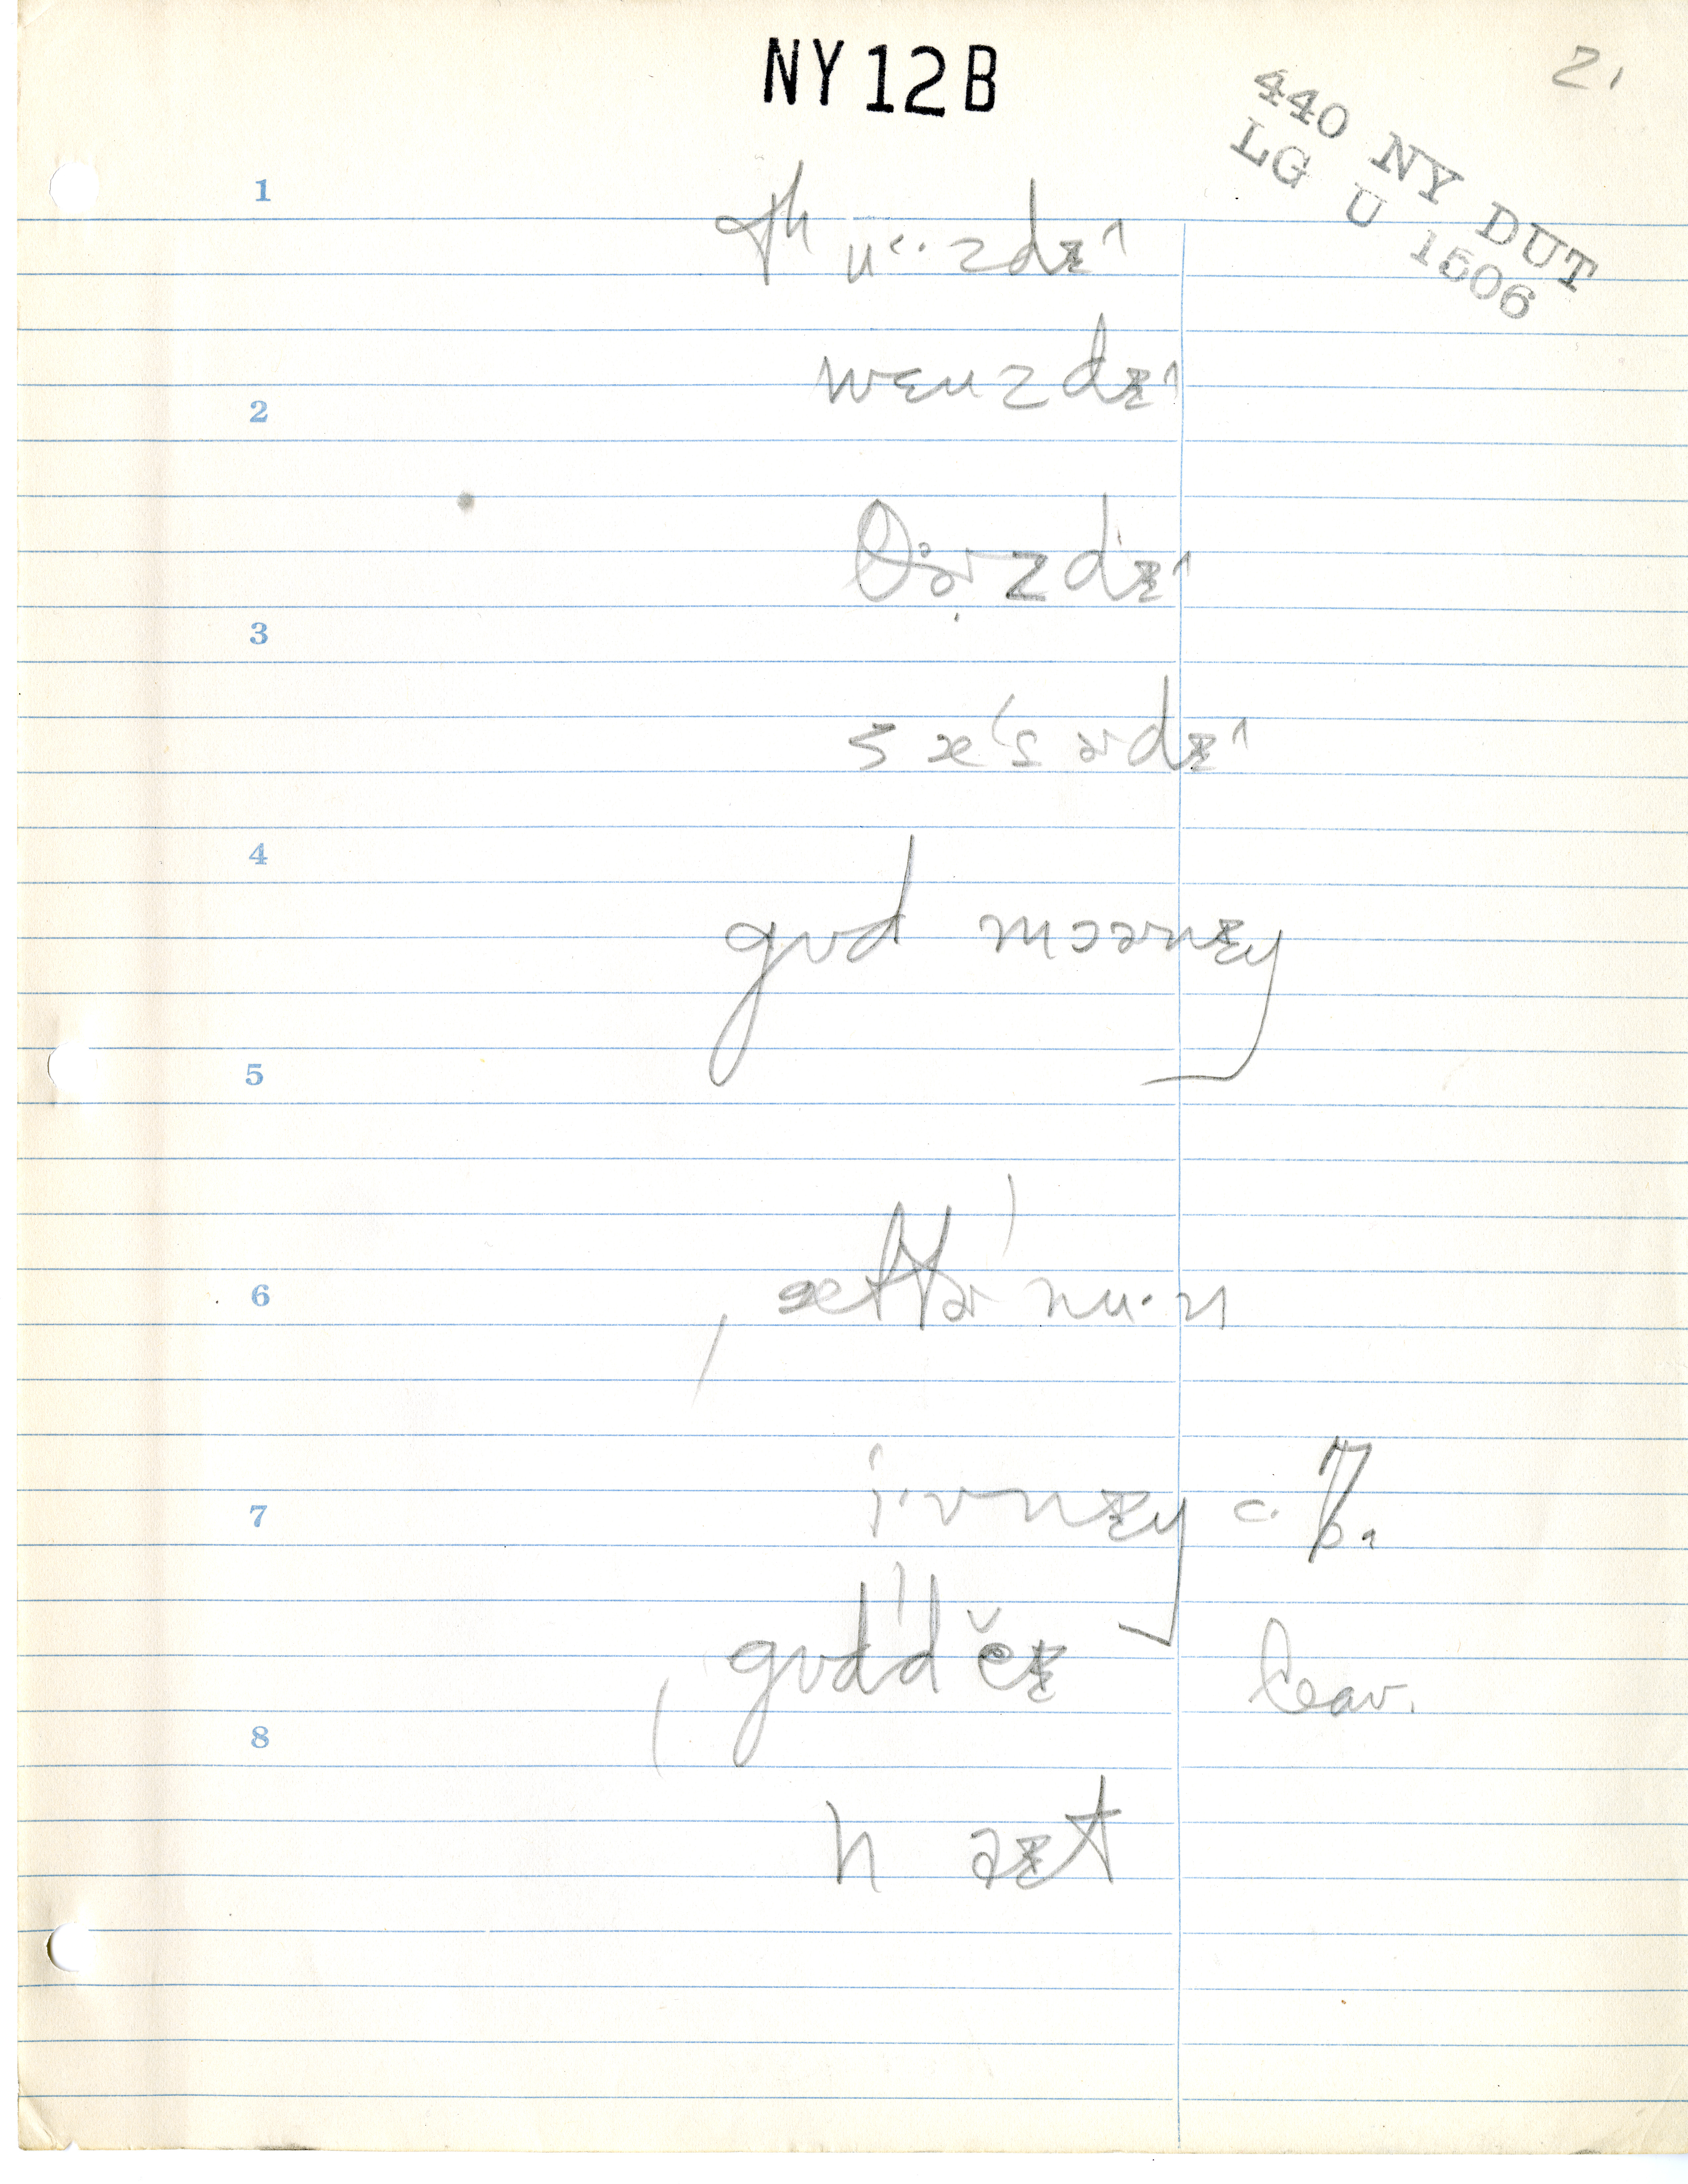 NY12B
2.
440 NY DUT
LG U 1506
1
tʰʉ‹·zdɪ^
2
wɛnzdɪ^
θɚzdɪ^
3
sæˈsɚdɪ^
4
gʊd mɔɚnɪŋ
5
6
ˌæftɚˈnu·n
7
ˈi·vnɪŋ c. 7.
ˌgʊdˈdĕɪ leav.
8
n aɪt